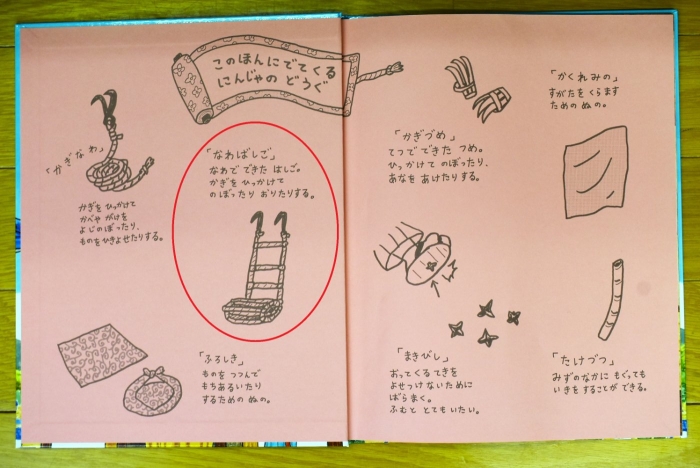 このほんにでてくる
にんじゃの どうぐ
「かぎなわ」
かぎを ひっかけて
かべや がけを
よじのぼったり、
ものをひきよせたりする。
「なわばしご」
なわで できた はしご。
かぎを ひっかけて
のぼったり おりたりする。
「ふろしき」
ものを つつんで
もちあるいたり
するための ぬの。
「かぎづめ」
てつで できた つめ。
ひっかけて のぼったり、
あなを あけたりする。
「かくれみの」
すがたを くらます
ための ぬの。
「まきびし」
おってくる てきを
よせつけないために
ばらまく。
ふむと とても いたい。
「たけづつ」
みずのなかに もぐっても
いきを することが できる。